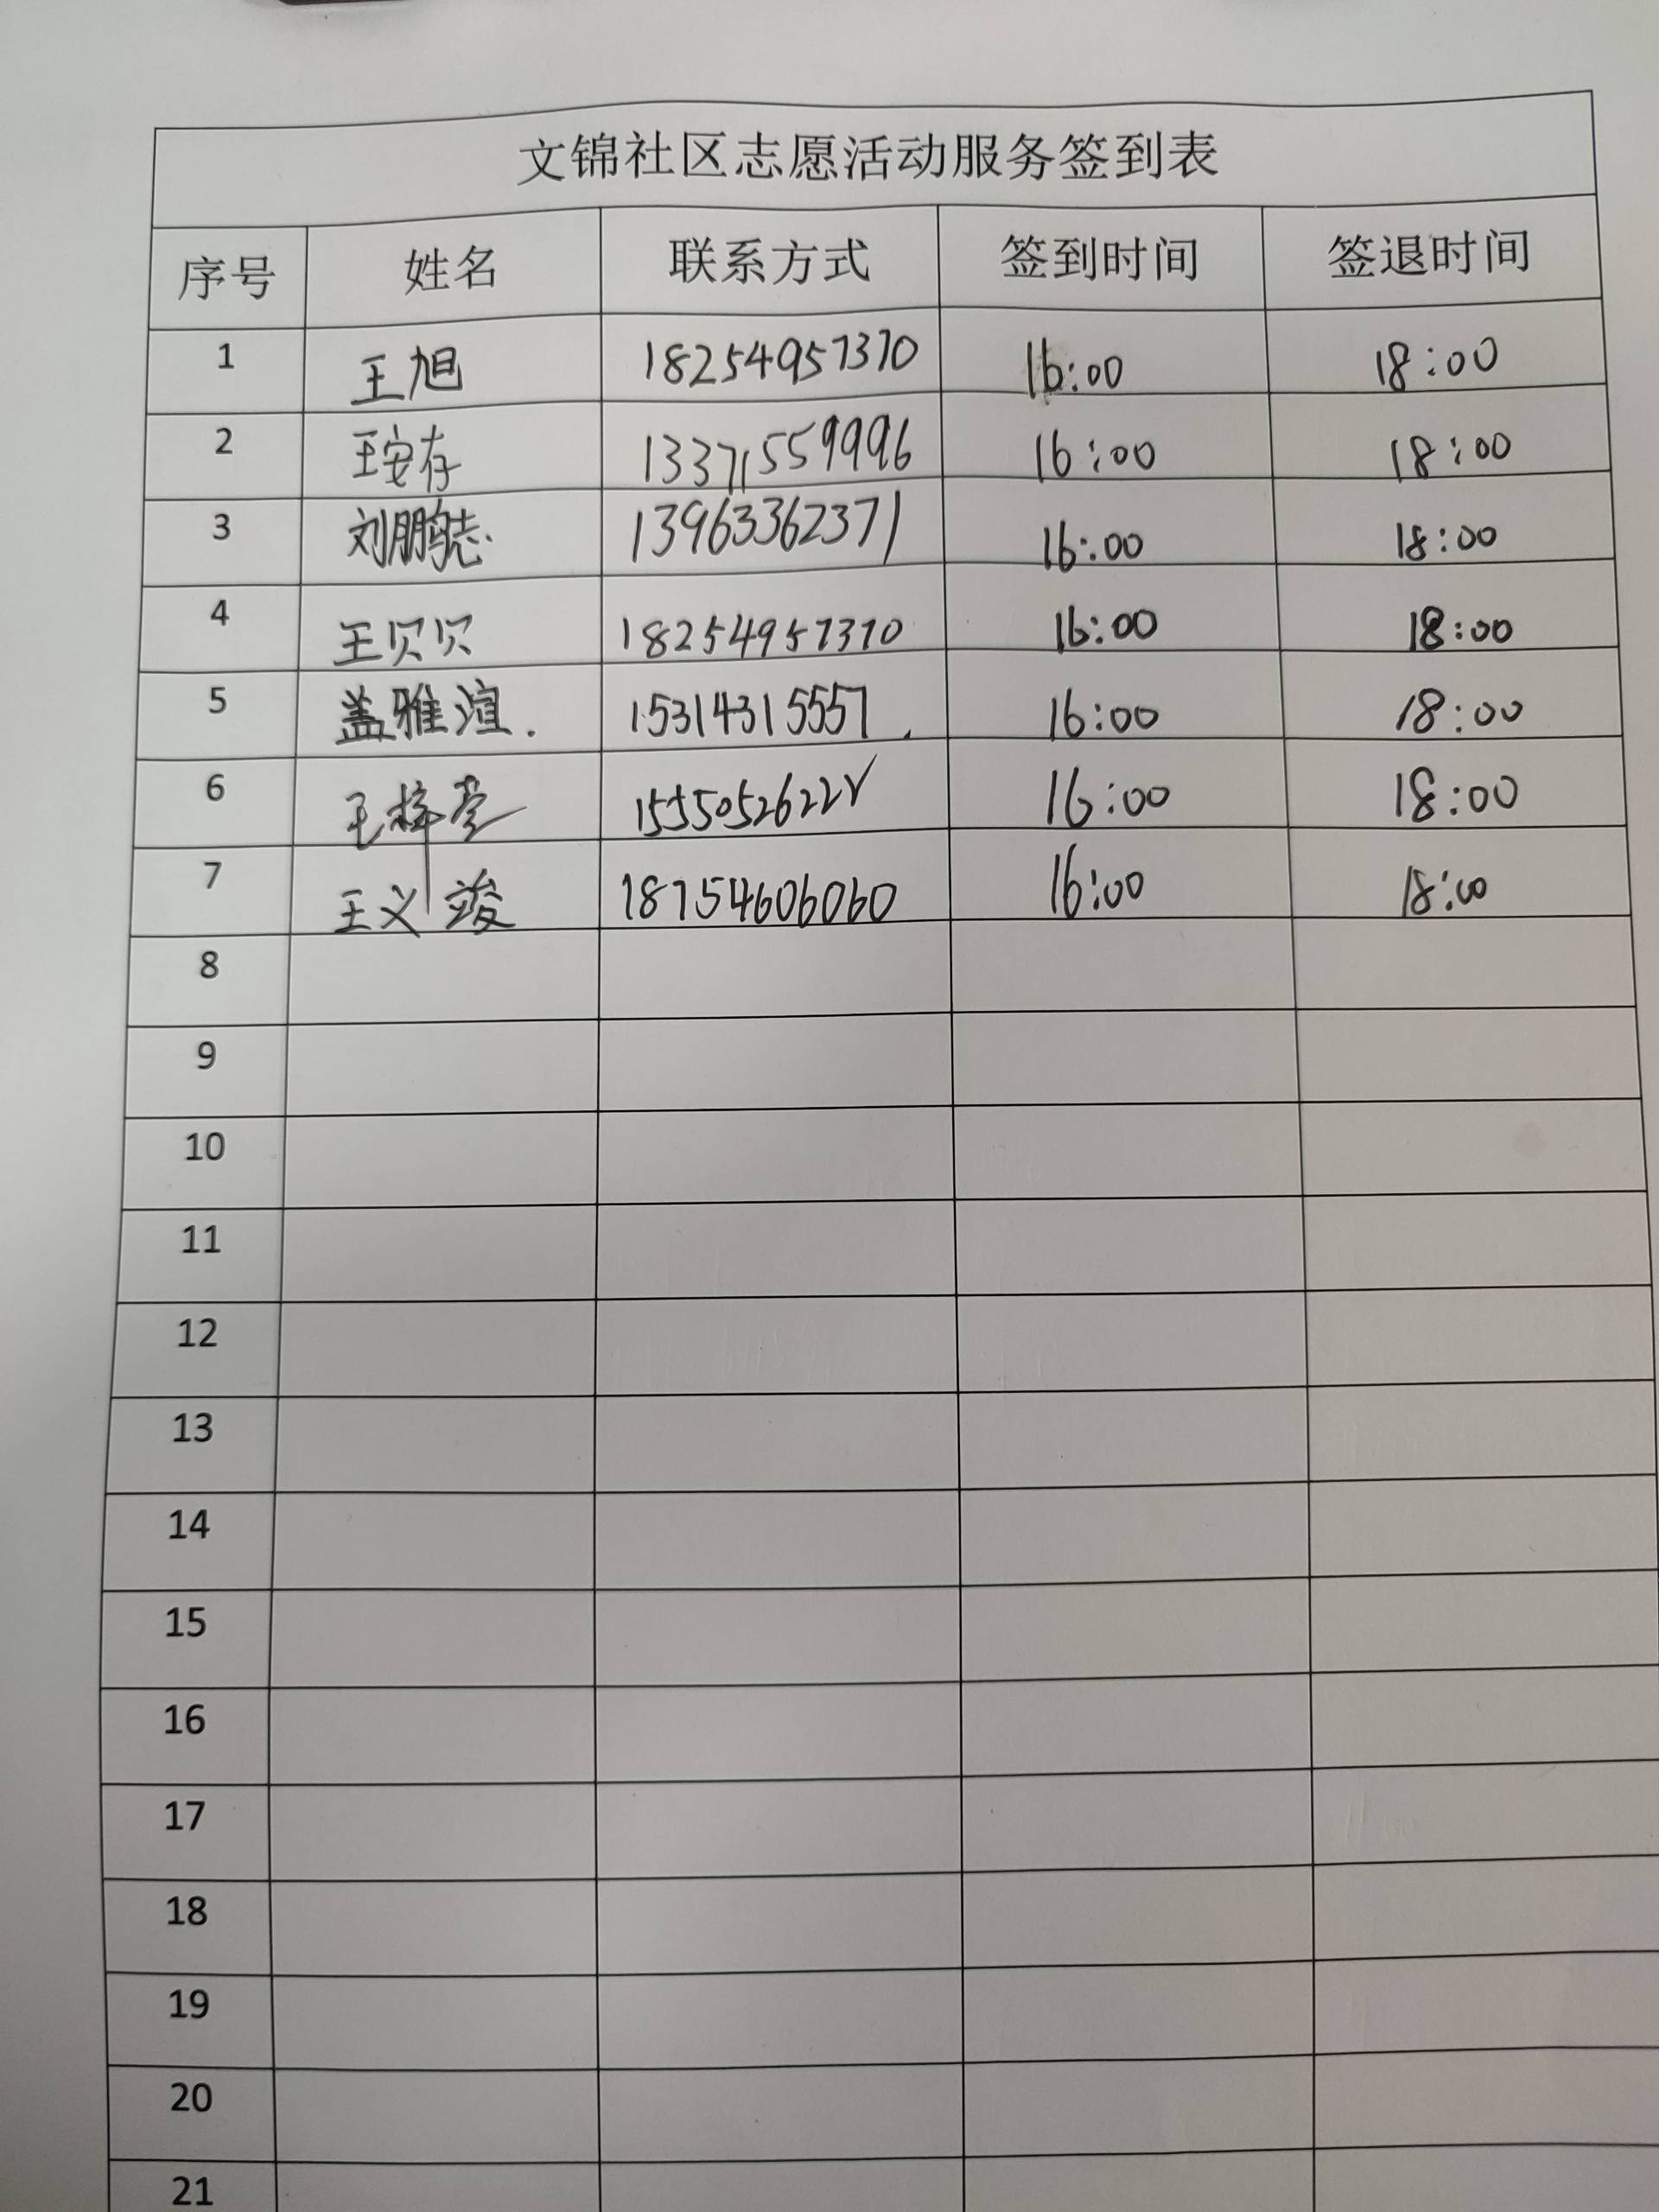 文锦社区志愿活动服务签到表
序号 姓名 联系方式 签到时间 签退时间
1 王旭 18254957370 16:00 18:00
2 王安存 13371559996 16:00 18:00
3 刘鹏志 13963362371 16:00 18:00
4 王贝贝 18254957370 16:00 18:00
5 盖雅渲. 15314315557. 16:00 18:00
6 王梓 16:00 18:00
7 王义竣 18754606060 16:00 18:00
8
9
10
11
12
13
14
15
16
17
18
19
20
21